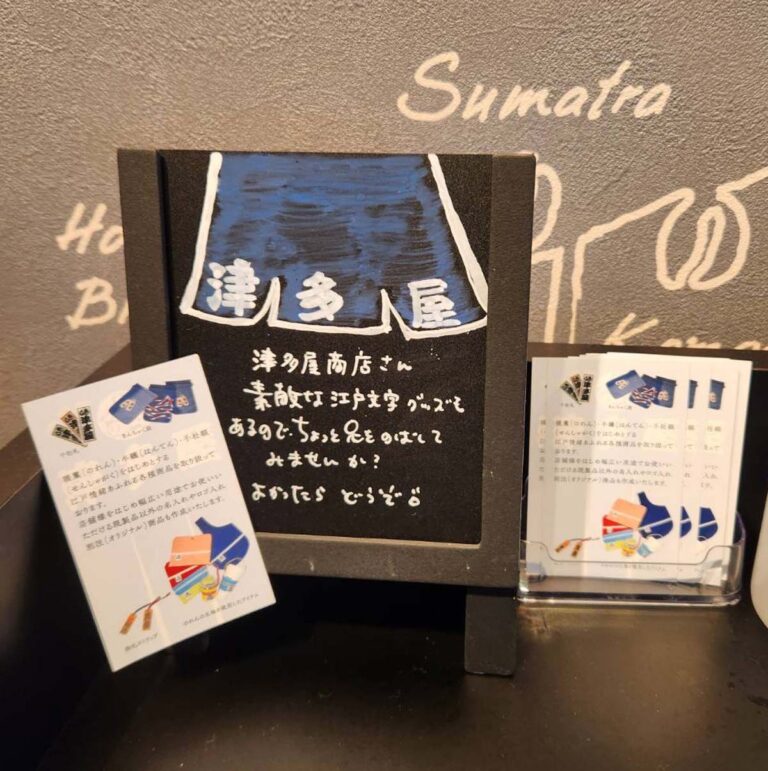 Sumatra
津多屋
津多屋商店さん
素敵な江戸文字グッズも
あるので、ちょっと足をのばして
みませんか?
よかったら どうぞ
千社札
きんちゃく袋
暖簾(のれん)・半纏(はんてん)・千社額
(せんしゃがく)をはじめとする
江戸情緒あふれる各種商品を取り扱って
おります。
店舗様をはじめ幅広い用途でお使いい
ただける既製品以外の名入れやロゴ入れ
別注(オリジナル)商品も作成いたします。
のれんの生地の能登したアイテム